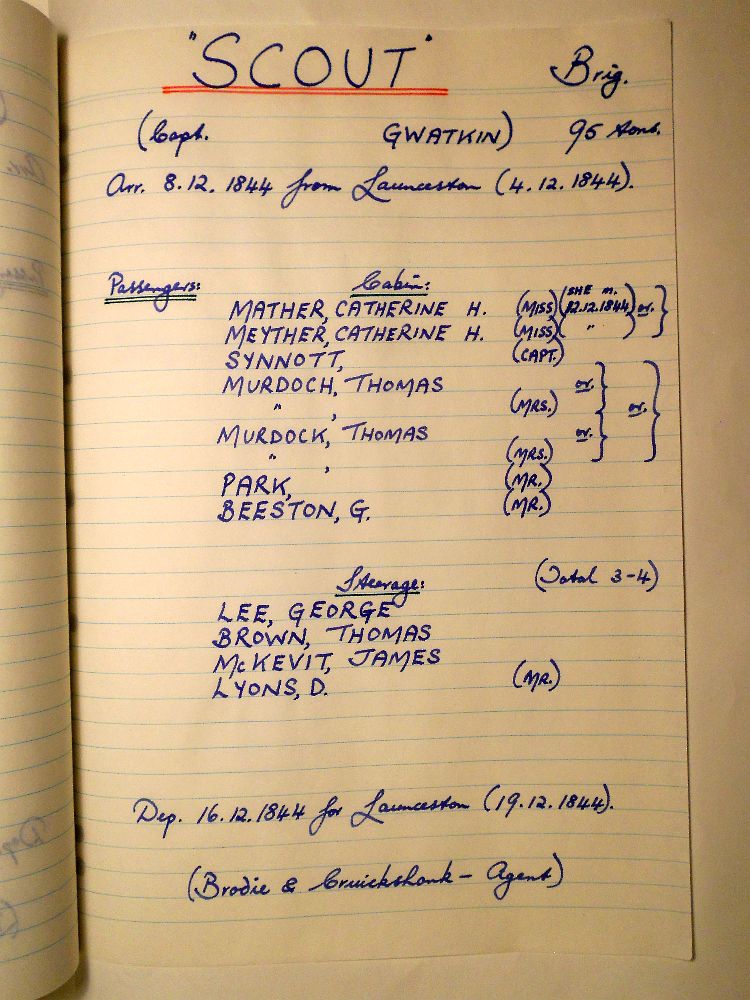 "SCOUT" Brig.
(Capt. GWATKIN) 95 tons.
Arr. 8.12.1844 from Launceston (4.12.1844).
Passengers: Cabin:
MATHER, CATHERINE H. (MISS) (SHE m. 12.12.1844) or.
MEYTHER, CATHERINE H. (MISS) ( " )
SYNNOTT, (CAPT.)
MURDOCH, THOMAS or.
" , (MRS.) or.
MURDOCK, THOMAS or.
" , (MRS.)
PARK, (MR.)
BEESTON, G. (MR.)
Steerage: (Total 3-4)
LEE, GEORGE
BROWN, THOMAS
McKEVIT, JAMES
LYONS, D. (MR.)
Dep. 16.12.1844 for Launceston (19.12.1844).
(Brodie & Cruickshank - Agent)